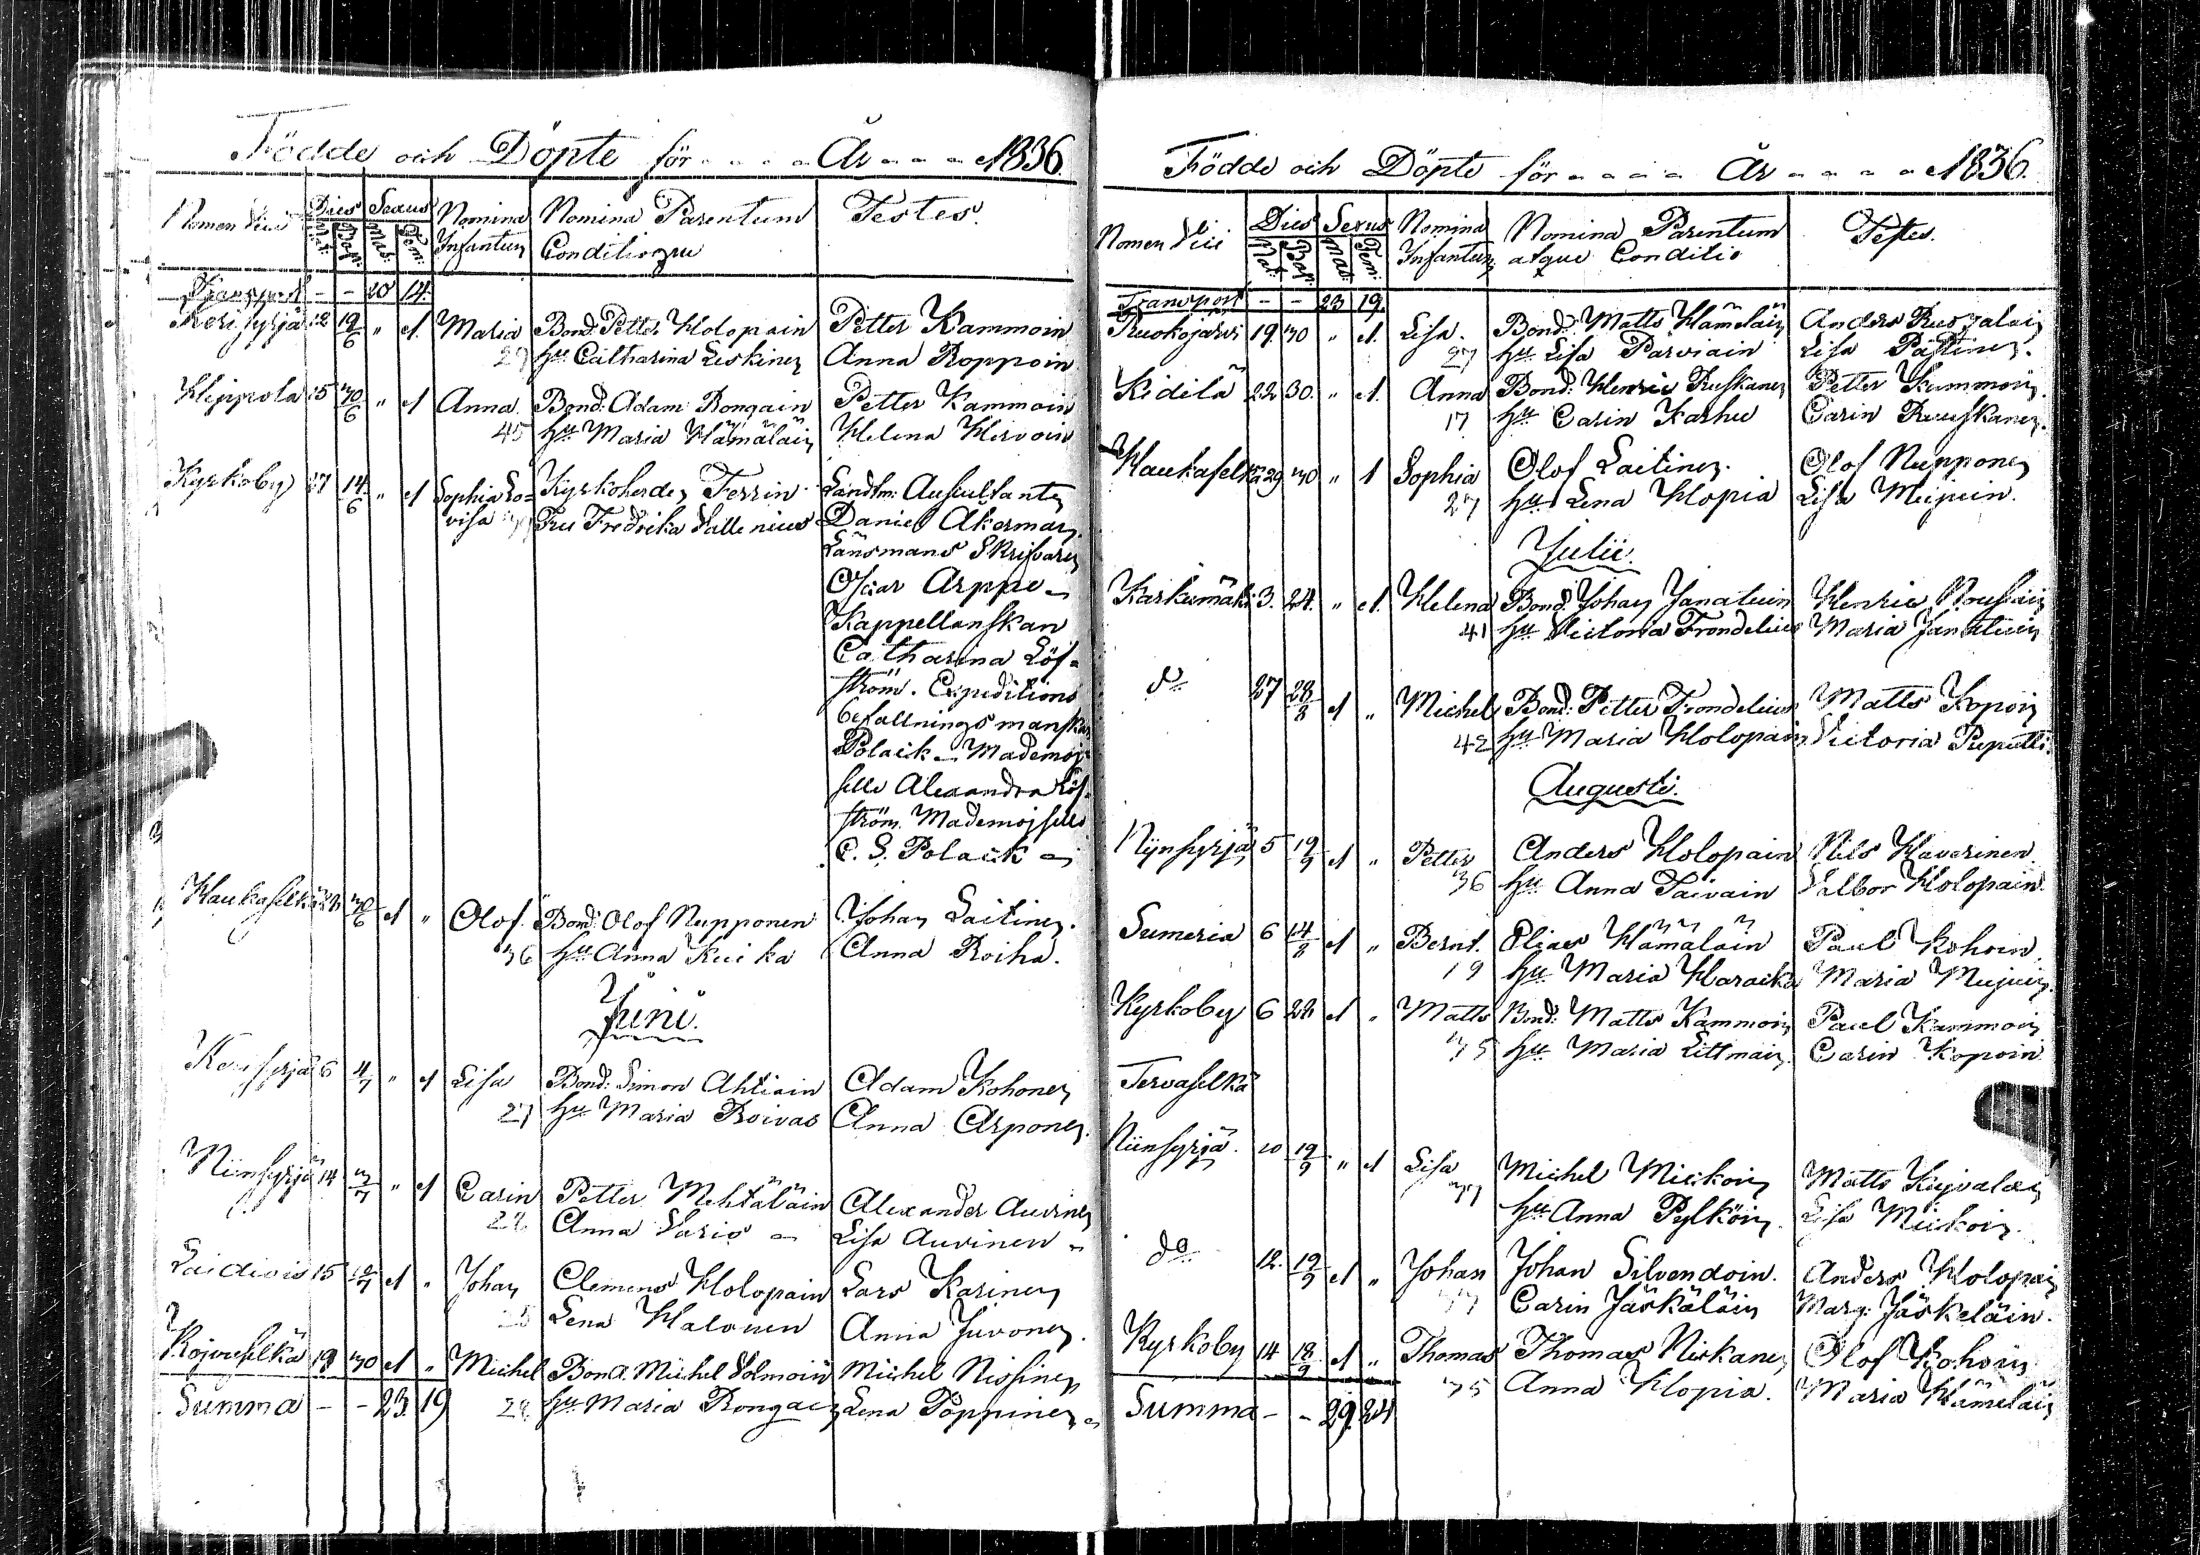 Födde och Döpte för - - - - År - - - 1836.
Nomen Vici Dies Nat: Bap: Sexus Mas: Fem: Nomina Infantum Nomina Parentum Conditioque Testes.
Transport - - 20 14.
Kerisyrjä 12 19/6 " 1. Maria Bond: Petter Holopain Petter Kammoin
29 hu Catharina Leskinen Anna Roppoin
15 30/6 " 1 Anna. Bond: Adam Rongain Petter Kammoin
45 hu Maria Hämäläin Helena Hirvoin
Kyrkoby 27 14/6 " 1 Sophia Lo= Kyrkoherden Ferrin Landtm: Auscultanten
visa Fru Fredrika Vallenius Daniel Akerman
Länsmans Skrifvaren
Oscar Arppe
Kappellanskan
Catharina Löf=
ström. Expeditions
befallningsmanskan
Polack Mademoj=
selle Alexandra Löf=
ström. Mademojselle
C. S. Polack
Haukaselkä 30/6 1 " Olof. Bond: Olof Nupponen Johan Laitinen.
36 hu Anna Kuikka Anna Roiha.
Juni.
6 4/7 " 1 Lisa Bond: Simon Ahtiain Adam Kohonen
27 hu Maria Roivas Anna Arponen.
Niinsyrjä 14 3/7 " 1 Carin Petter Mehtäläin Alexander Auvinen
Anna Varis Lisa Auvinen
15 1 " Johan Clemens Holopain Lars Karinen
Lena Halonen Anna Juvonen.
Kojvuselkä 19 30 1 " Michel Bond. Michel Volmoin Michel Nissinen
hu Maria Rongain Lena Poppinen
Summa - - 23. 19
Födde och Döpte för - - - - År - - - - 1836.
Nomen Vici Dies Nat: Bap: Sexus Mas: Fem: Nomina Infantum Nomina Parentum atque Conditio Testes.
Transport - - 23 19.
Ruokojärvi 19. 30 " 1. Lisa. Bond: Matts Hämeläin Anders
27 hu Lisa Parviain Lisa
Kidilä 22 30. " 1. Anna Bond: Henric Ruskanen Petter Kammoin.
17 hu Carin Karhu Carin Ruuskanen.
Haukaselkä 29 30 " 1 Sophia Olof Laitinen. Olof Nupponen
27 hu Lena Hopia Lisa Mujuin.
Julii.
Karkumäki 3. 24. " 1. Helena Bond: Johan Janatuin Henric Nousiain
41 hu Victoria Frondelius Maria Janatuin
do 27 28/8 1 " Michel Bond: Petter Frondelius Matts Kopoin
42 hu Maria Holopain. Victoria Puputti.
Augusti.
Niinsyrjä 5 19/9 1 " Petter Anders Holopain Nils Haverinen
36 hu Anna Taivain Valbor Holopain.
Sumeria 6 14/8 1 " Bernt. Elias Hämäläin Paul Kohoin
19 hu Maria Harakka Maria Mujuin.
Kyrkoby 6 22 1 " Matts Bond: Matts Kammoin Paul Kammoin
35 hu Maria Littmain. Carin Kopoin.
Tervaselkä
Niinsyrjä. 10 19/9 " 1 Lisa Michel Miikoin Matts Kujvalain
hu Anna Pylköin. Lisa Miikoin.
do 12. 19/9 1 " Johan Johan Silvendoin. Anders Holopain
Carin Jäskäläin Marg: Jäskeläin.
Kyrkoby 14 18/9 1 " Thomas Thomas Niskanen Olof Kohoin
35 Anna Hopia. Maria Hämeläin
Summa - - 29. 24